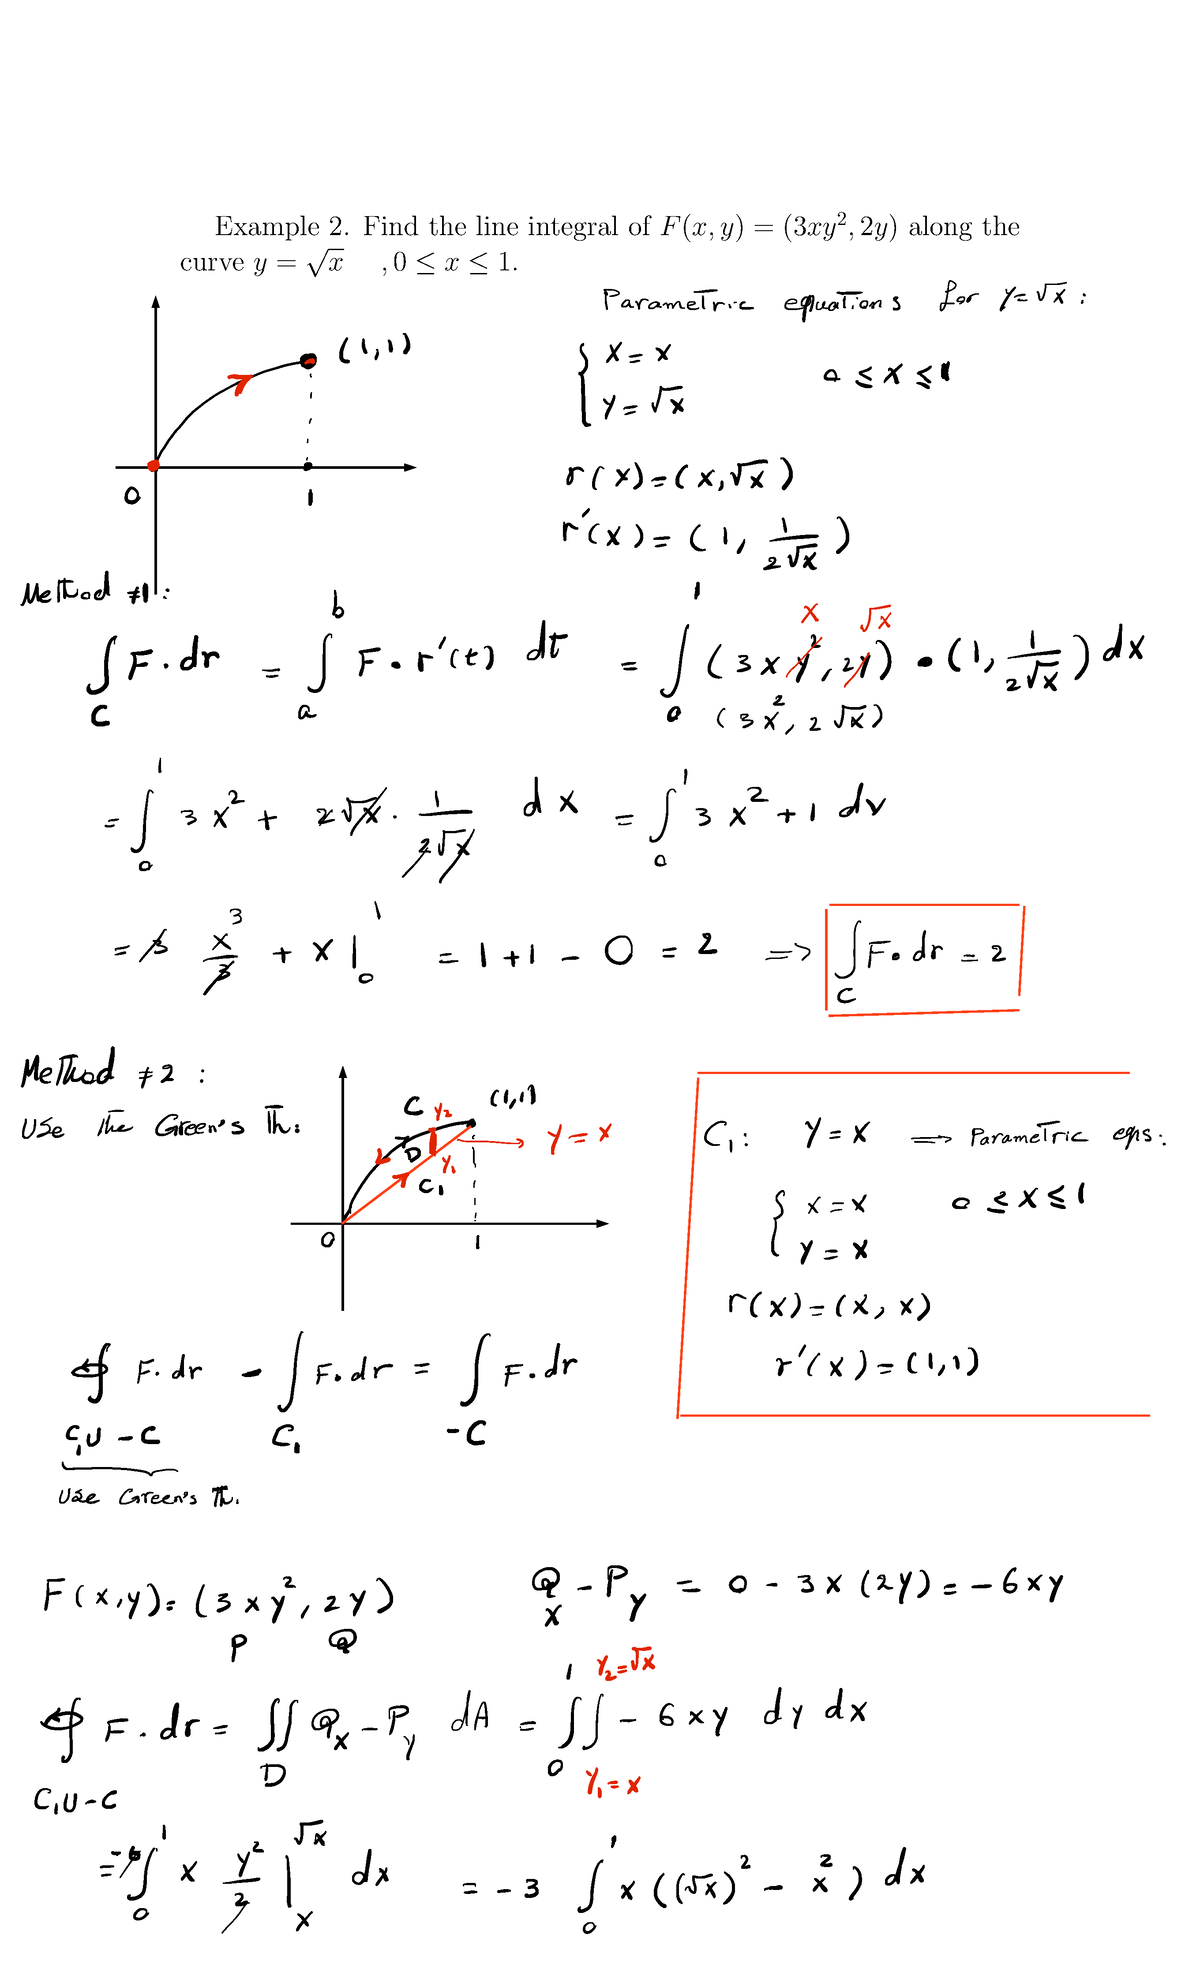 Example 2. Find the line integral of F(x, y) = (3xy², 2y) along the
curve y = √x , 0 ≤ x ≤ 1.
Parametric equations for y=√x :
(1,1)
{ x = x
y = √x
0 ≤ x ≤ 1
0 1
r(x)=(x,√x)
r'(x)=(1, 1/(2√x))
Method #1:
∫_C F·dr = ∫_a^b F·r'(t) dt = ∫_0^1 (3x y², 2y)·(1, 1/(2√x)) dx
x √x
(3x², 2√x)
= ∫_0^1 3x² + 2√x · 1/(2√x) dx = ∫_0^1 3x²+1 dx
= 3 x³/3 + x |_0^1 = 1+1 - 0 = 2 => ∫_C F·dr = 2
Method #2 :
Use the Green's Th:
C y₂ (1,1)
D y₁ y=x
C₁
0 1
C₁: y=x => Parametric eqns:
{ x=x
y=x
0 ≤ x ≤ 1
r(x)=(x, x)
r'(x)=(1,1)
∮_{C₁∪-C} F·dr - ∫_{C₁} F·dr = ∫_{-C} F·dr
Use Green's Th.
F(x,y)=(3xy², 2y)
P Q
Q_x - P_y = 0 - 3x(2y) = -6xy
∮_{C₁∪-C} F·dr = ∬_D Q_x - P_y dA = ∫_0^1 ∫_{y₁=x}^{y₂=√x} -6xy dy dx
= -6 ∫_0^1 x y²/2 |_x^√x dx = -3 ∫_0^1 x((√x)² - x²) dx